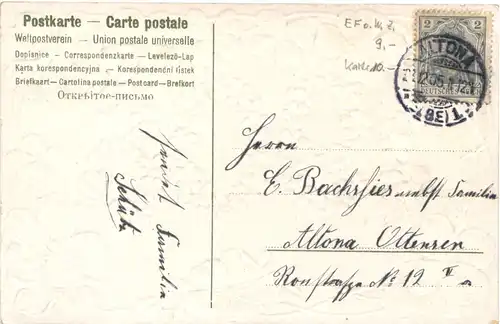 Postkarte — Carte postale
Weltpostverein — Union postale universelle
Dopisnice — Correspondenzkarte — Levelező-Lap
Karta korespondencyjna — Korespondenčni listek
Briefkaart — Cartolina postale — Postcard — Brefkort
Открытое-письмо
EF o. W. Z.
9,-
Karte 10.-
2 2
ALTONA
DEUTSCHES
Herrn
E. Bachries nebst Familie
Altona Ottensen
No 12 II
Familie
Schütz